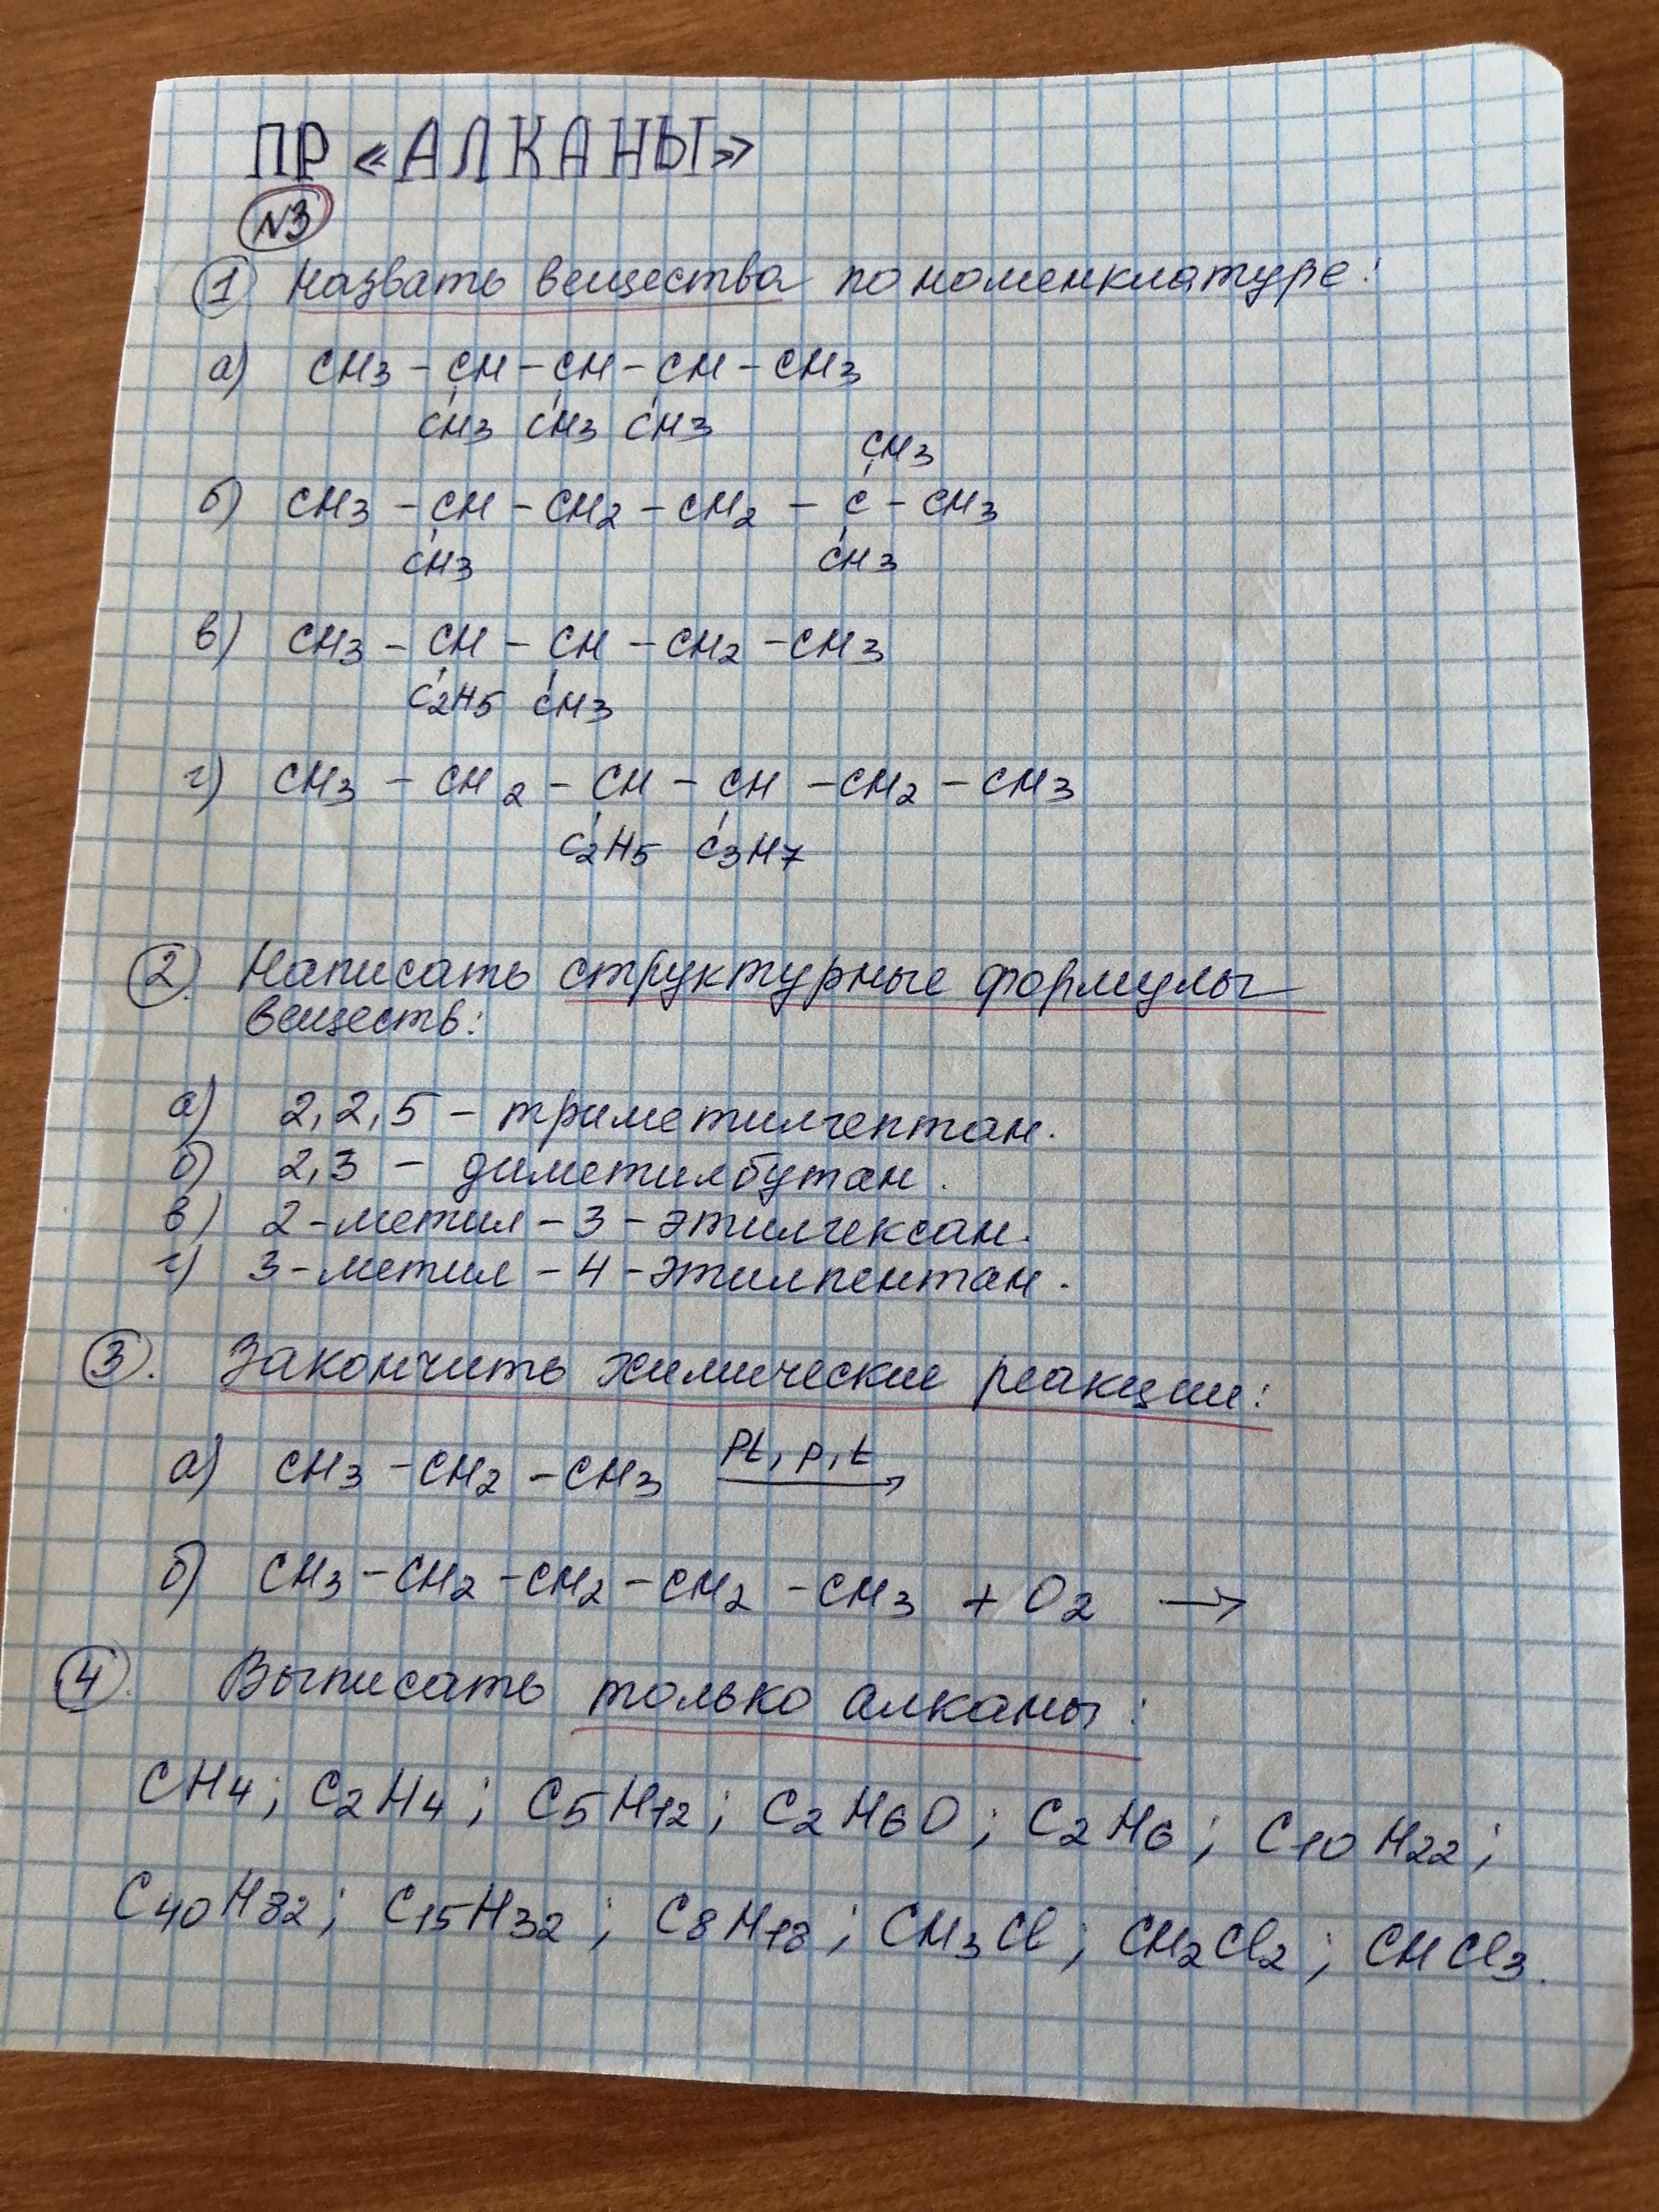 ПР «АЛКАНЫ»
№3
1 Назвать вещества по номенклатуре:
а) CH3 - CH - CH - CH - CH3
CH3 CH3 CH3
CH3
б) CH3 - CH - CH2 - CH2 - C - CH3
CH3 CH3
в) CH3 - CH - CH - CH2 - CH3
C2H5 CH3
г) CH3 - CH2 - CH - CH - CH2 - CH3
C2H5 C3H7
2. Написать структурные формулы
веществ:
а) 2,2,5 - триметилгептан.
б) 2,3 - диметилбутан.
в) 2-метил-3-этилгексан.
г) 3-метил-4-этилпентан.
3. Закончить химические реакции:
а) CH3 - CH2 - CH3 Pt, p, t →
б) CH3 - CH2 - CH2 - CH2 - CH3 + O2 →
4. Выписать только алканы:
CH4; C2H4; C5H12; C2H6O; C2H6; C10H22;
C40H82; C15H32; C8H18; CH3Cl; CH2Cl2; CHCl3.